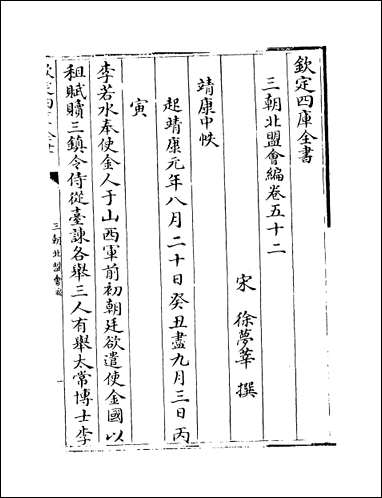 欽定四庫全書
三朝北盟會編卷五十二
宋 徐夢莘 撰
靖康中帙
起靖康元年八月二十日癸丑盡九月三日丙
寅
李若水奉使金人于山西軍前初朝廷欲遣使金國以
租賦贖三鎮令侍從臺諫各舉三人有舉太常博士李
欽定四庫全書
三朝北盟會編